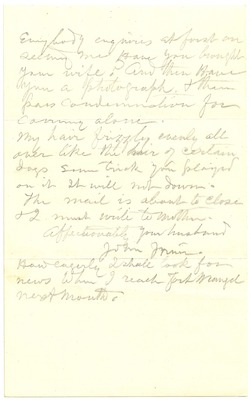 Everybody enquires at first on
seeing me Have you brought
your wife? And then Have
you a photograph, & then
pass condemnation for
coming alone.
My hair frizzly evenly all
over like the hair of certain
dogs some trick you played
on it It will not down.
The mail is about to close
& I must write to Mother.
Affectionately your husband
John Muir.
How eagerly I shall look for
news when I reach Fort Wrangel
next month.